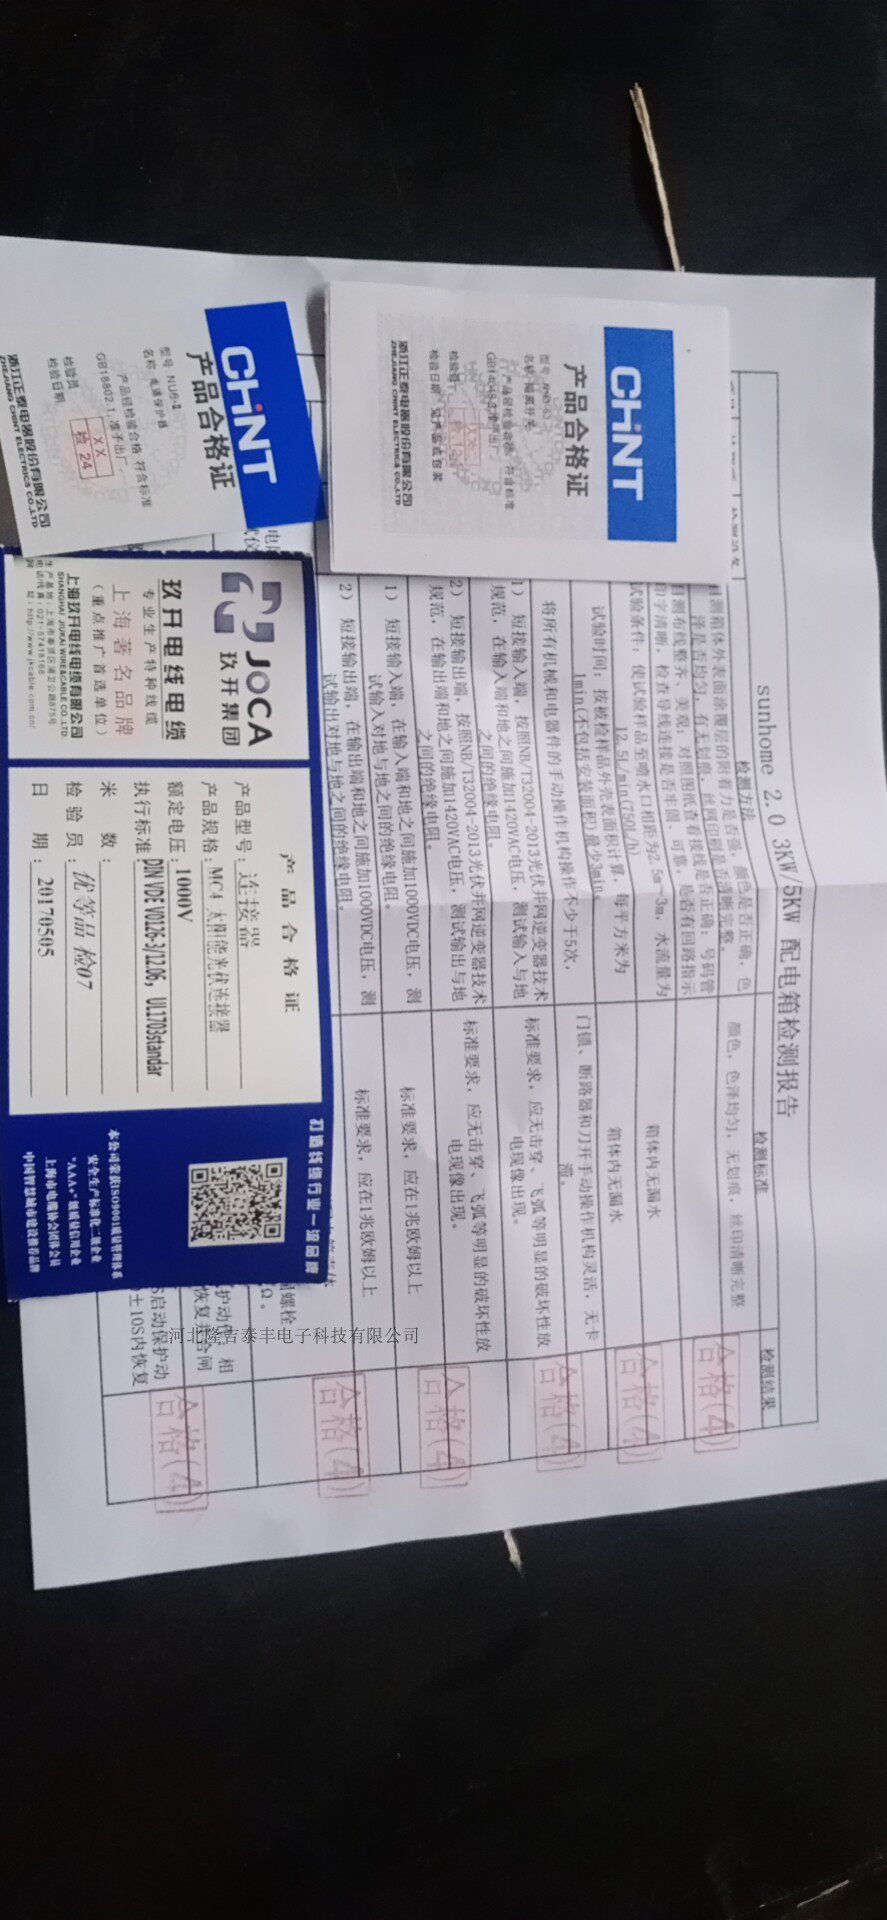 CHNT
产品合格证
型号：NU6-Ⅱ
名称：电涌保护器
产品经检验合格 符合标准
GB18802.1，准予出厂。
检验员
XX
检 24
检验日期
浙江正泰电器股份有限公司
ZHEJIANG CHINT ELECTRICS CO.,LTD
CHNT
产品合格证
型号
名称：隔离开关
产品经检验合格，符合标准
检验员
检验日期：见产品或包装
浙江正泰电器股份有限公司
ZHEJIANG CHINT ELECTRICS CO.,LTD
JOCA
玖开集团
玖开电线电缆
专业生产特种线缆
上海著名品牌
（重点推广首选单位）
上海玖开电线电缆有限公司
SHANGHAI JIUKAI WIRE&CABLE CO.,LTD.
生产基地：上海市奉贤区浦卫公路875号
电话传真：021-57418168
网 址：http://www.jkcable.com.cn/
产品合格证
产品型号：连接器
产品规格：MC4 太阳能光伏连接器
额定电压：1000V
执行标准：DIN VDE V0126-3/12.06, UL1703standar
米 数：
检 验 员：优等品 检07
日 期：20170505
打造线缆行业一流品牌
本公司荣获ISO9001质量管理体系
安全生产标准化二级企业
"AAA+"级质量信用企业
上海市电缆协会团体会员
中国智慧城市建设推荐品牌
sunhome 2.0 3KW/5KW 配电箱检测报告
检测方法
检测标准
检测结果
目测箱体外表面涂覆层的附着力是否强，颜色是否正确，色
泽是否均匀，有无划痕，丝网印刷是否清晰完整。
颜色，色泽均匀，无划痕，丝印清晰完整
合格(4)
目测布线整齐、美观；对照图纸查看接线是否正确；号码管
印字清晰，检查导线连接是否牢固、可靠，是否有回路指示
试验条件：使试验样品至喷水口相距为2.5m~3m，水流量为
12.5L/min(750L/h)
箱体内无漏水
合格(4)
试验时间：按被检样品外壳表面积计算，每平方米为
1min(不包括安装面积)最少3min。
箱体内无漏水
将所有机械和电器件的手动操作机构操作不少于5次，
门锁、断路器和刀开手动操作机构灵活，无卡
滞。
合格(4)
1）短接输入端，按照NB/T32004-2013光伏并网逆变器技术
规范，在输入端和地之间施加1420VAC电压，测试输入与地
之间的绝缘电阻。
标准要求，应无击穿、飞弧等明显的破坏性放
电现像出现。
2）短接输出端，按照NB/T32004-2013光伏并网逆变器技术
规范，在输出端和地之间施加1420VAC电压，测试输出与地
之间的绝缘电阻。
标准要求，应无击穿、飞弧等明显的破坏性放
电现像出现。
合格(4)
1）短接输入端，在输入端和地之间施加1000VDC电压，测
试输入对地与地之间的绝缘电阻。
标准要求，应在1兆欧姆以上
2）短接输出端，在输出端和地之间施加1000VDC电压，测
试输出对地与地之间的绝缘电阻。
标准要求，应在1兆欧姆以上
合格(4)
螺栓
Ω。
护动作，相
恢复并合闸
启动保护动
±10S内恢复
合格(4)
河北隆吉泰丰电子科技有限公司